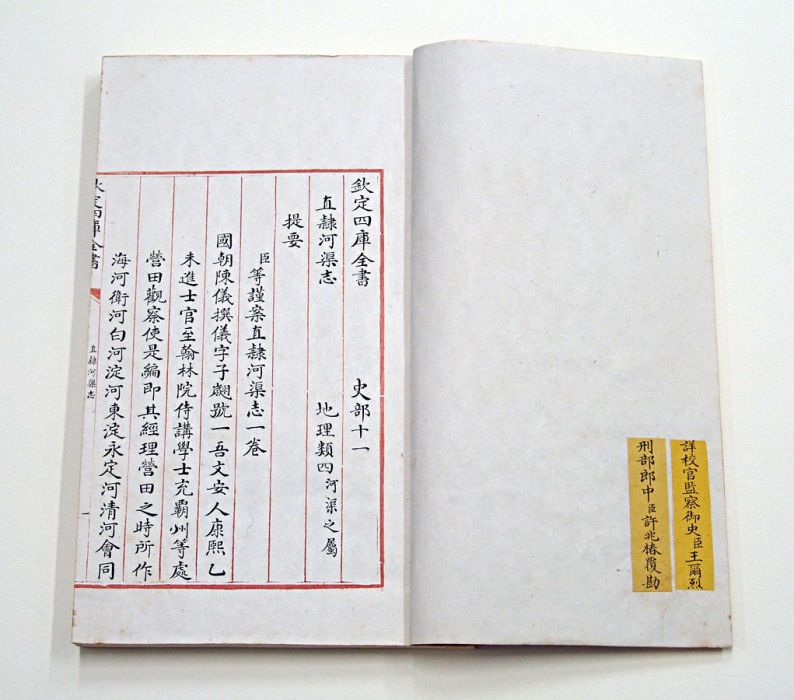 詳校官監察御史臣王爾烈
刑部郎中臣許兆椿覆勘
欽定四庫全書 史部十一
直隸河渠志 地理類四河渠之屬
提要
臣等謹案直隸河渠志一卷
國朝陳儀撰儀字子翽號一吾文安人康熙乙
未進士官至翰林院侍講學士充霸州等處
營田觀察使是編即其經理營田之時所作
海河衛河白河淀河東淀永定河清河會同
欽定四庫全書
直隸河渠志
一